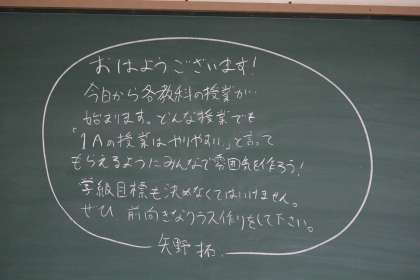 おはようございます!
今日から各教科の授業が…
始まります。どんな授業でも
「1Aの授業はやりやすい。」と言って
もらえるようにみんなで雰囲気を作ろう!
学級目標も決めなくてはいけません。
ぜひ 前向きなクラス作りをして下さい。
矢野